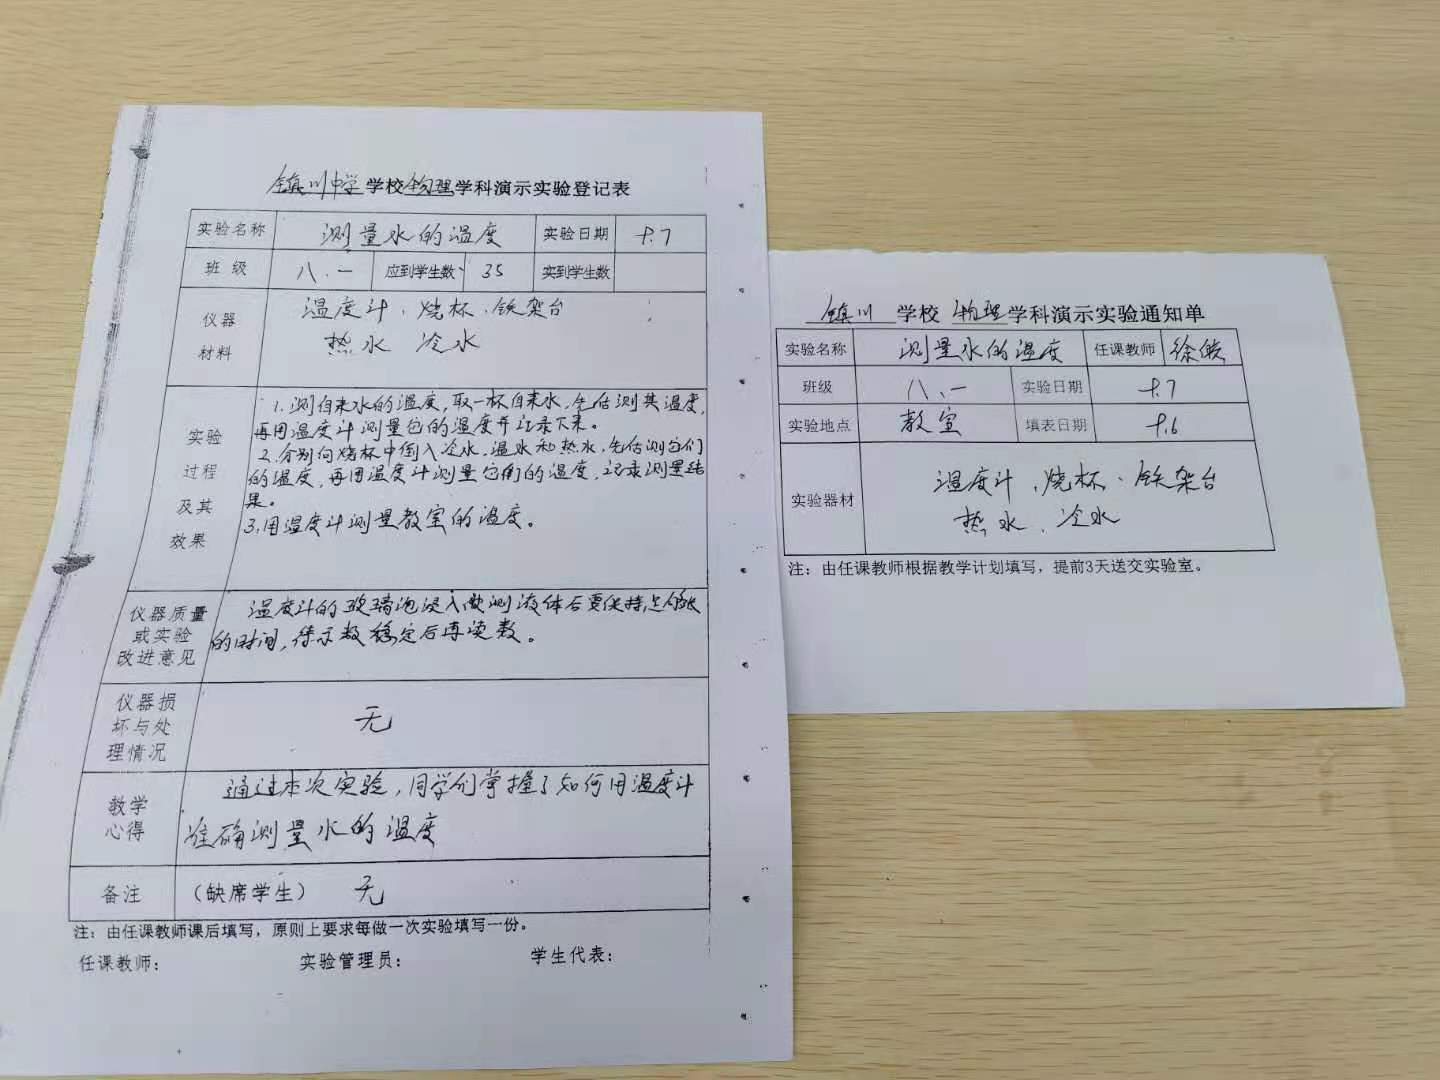 镇川中学学校物理学科演示实验登记表
实验名称 测量水的温度 实验日期 9.7
班级 八.一 应到学生数 35 实到学生数
仪器材料 温度计、烧杯、铁架台
热水 冷水
实验过程及其效果
1.测自来水的温度,取一杯自来水,先估测其温度,
再用温度计测量它的温度并记录下来。
2.分别向烧杯中倒入冷水,温水和热水,先估测它们
的温度,再用温度计测量它们的温度,记录测量结
果。
3.用温度计测量教室的温度。
仪器质量或实验改进意见
温度计的玻璃泡浸入被测液体后要保持足够长
的时间,待示数稳定后再读数。
仪器损坏与处理情况 无
教学心得
通过本次实验,同学们掌握了如何用温度计
准确测量水的温度
备注 (缺席学生) 无
注:由任课教师课后填写,原则上要求每做一次实验填写一份。
任课教师: 实验管理员: 学生代表:
镇川 学校 物理学科演示实验通知单
实验名称 测量水的温度 任课教师 徐皎
班级 八.一 实验日期 9.7
实验地点 教室 填表日期 9.6
实验器材 温度计、烧杯、铁架台
热水、冷水
注:由任课教师根据教学计划填写,提前3天送交实验室。